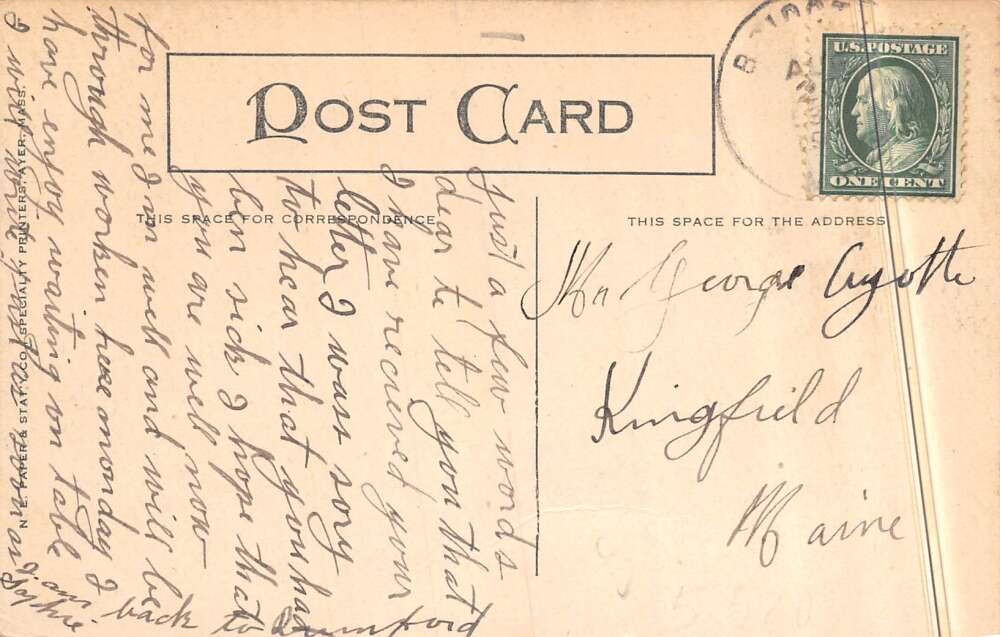 POST CARD
U.S. POSTAGE
ONE CENT
THIS SPACE FOR CORRESPONDENCE
THIS SPACE FOR THE ADDRESS
Mr George Ayotte
Kingfield
Maine
Just a few words
dear to tell you that
I have recieved your
letter I was sory
to hear that you had
ben sick I hope that
you are well now
for me I'm well and will be
through worken here monday I
have enjoy waiting on table
I will write you
soon
I am
Sophie
back to Rumford
N.E. PAPER & STAT. CO. SPECIALTY PRINTERS, AYER, MASS.